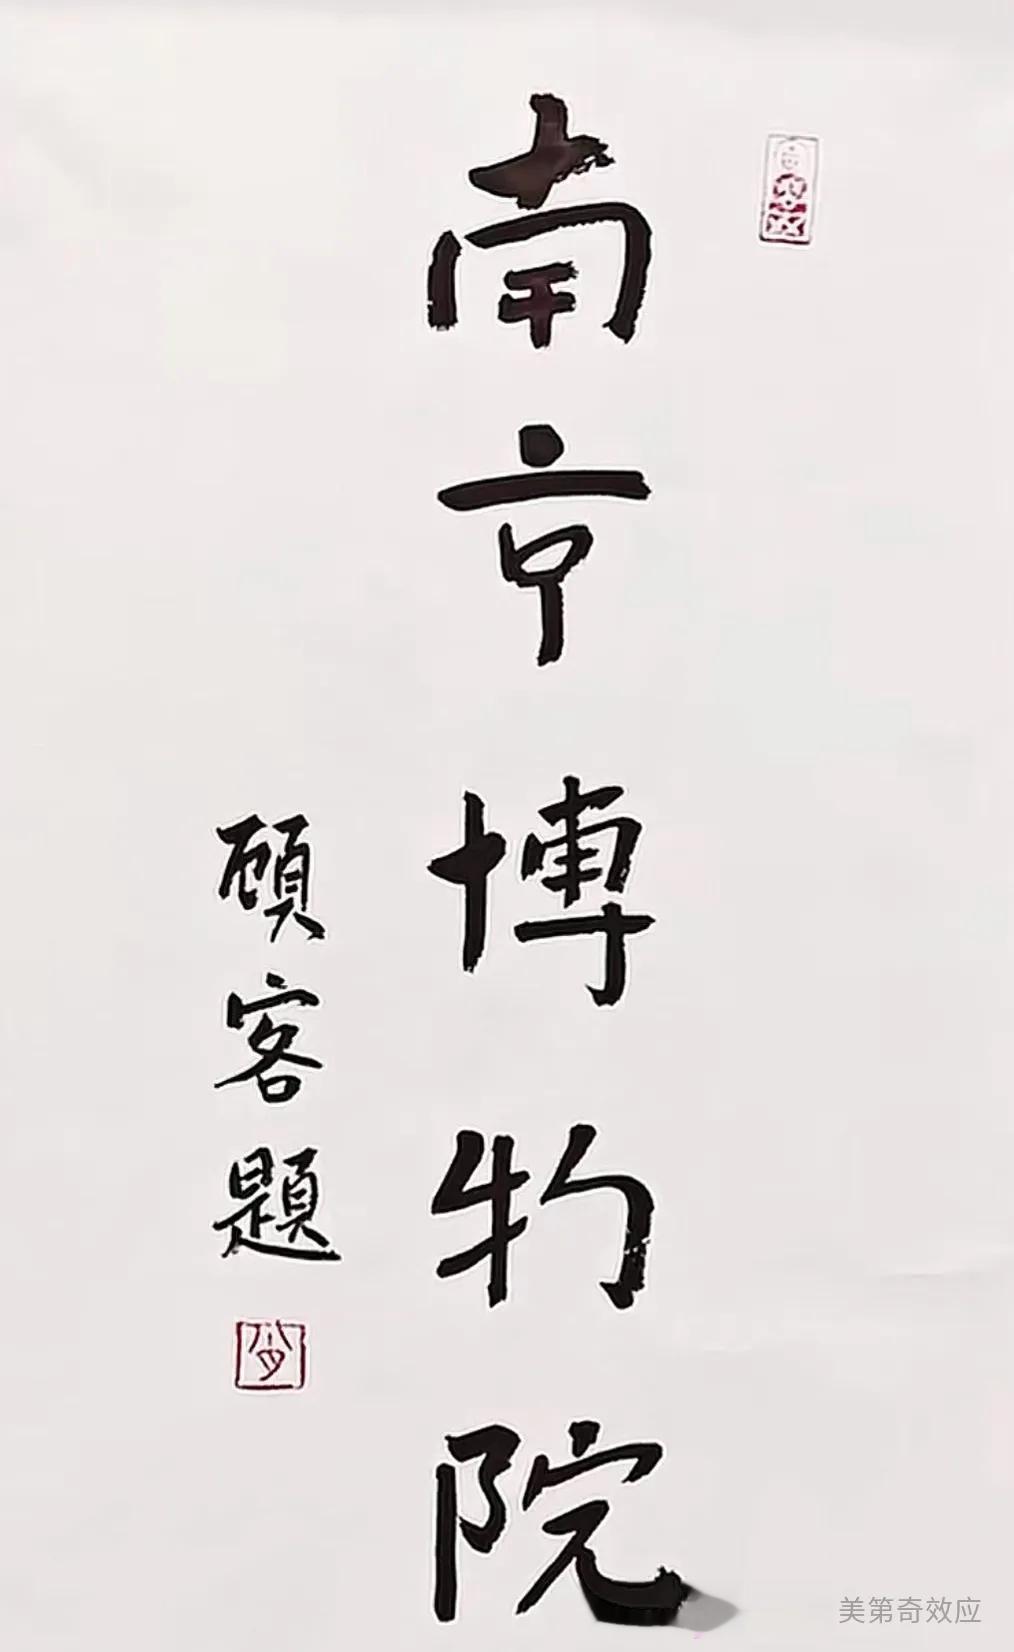 南京博物院
頋客題
美第奇效应